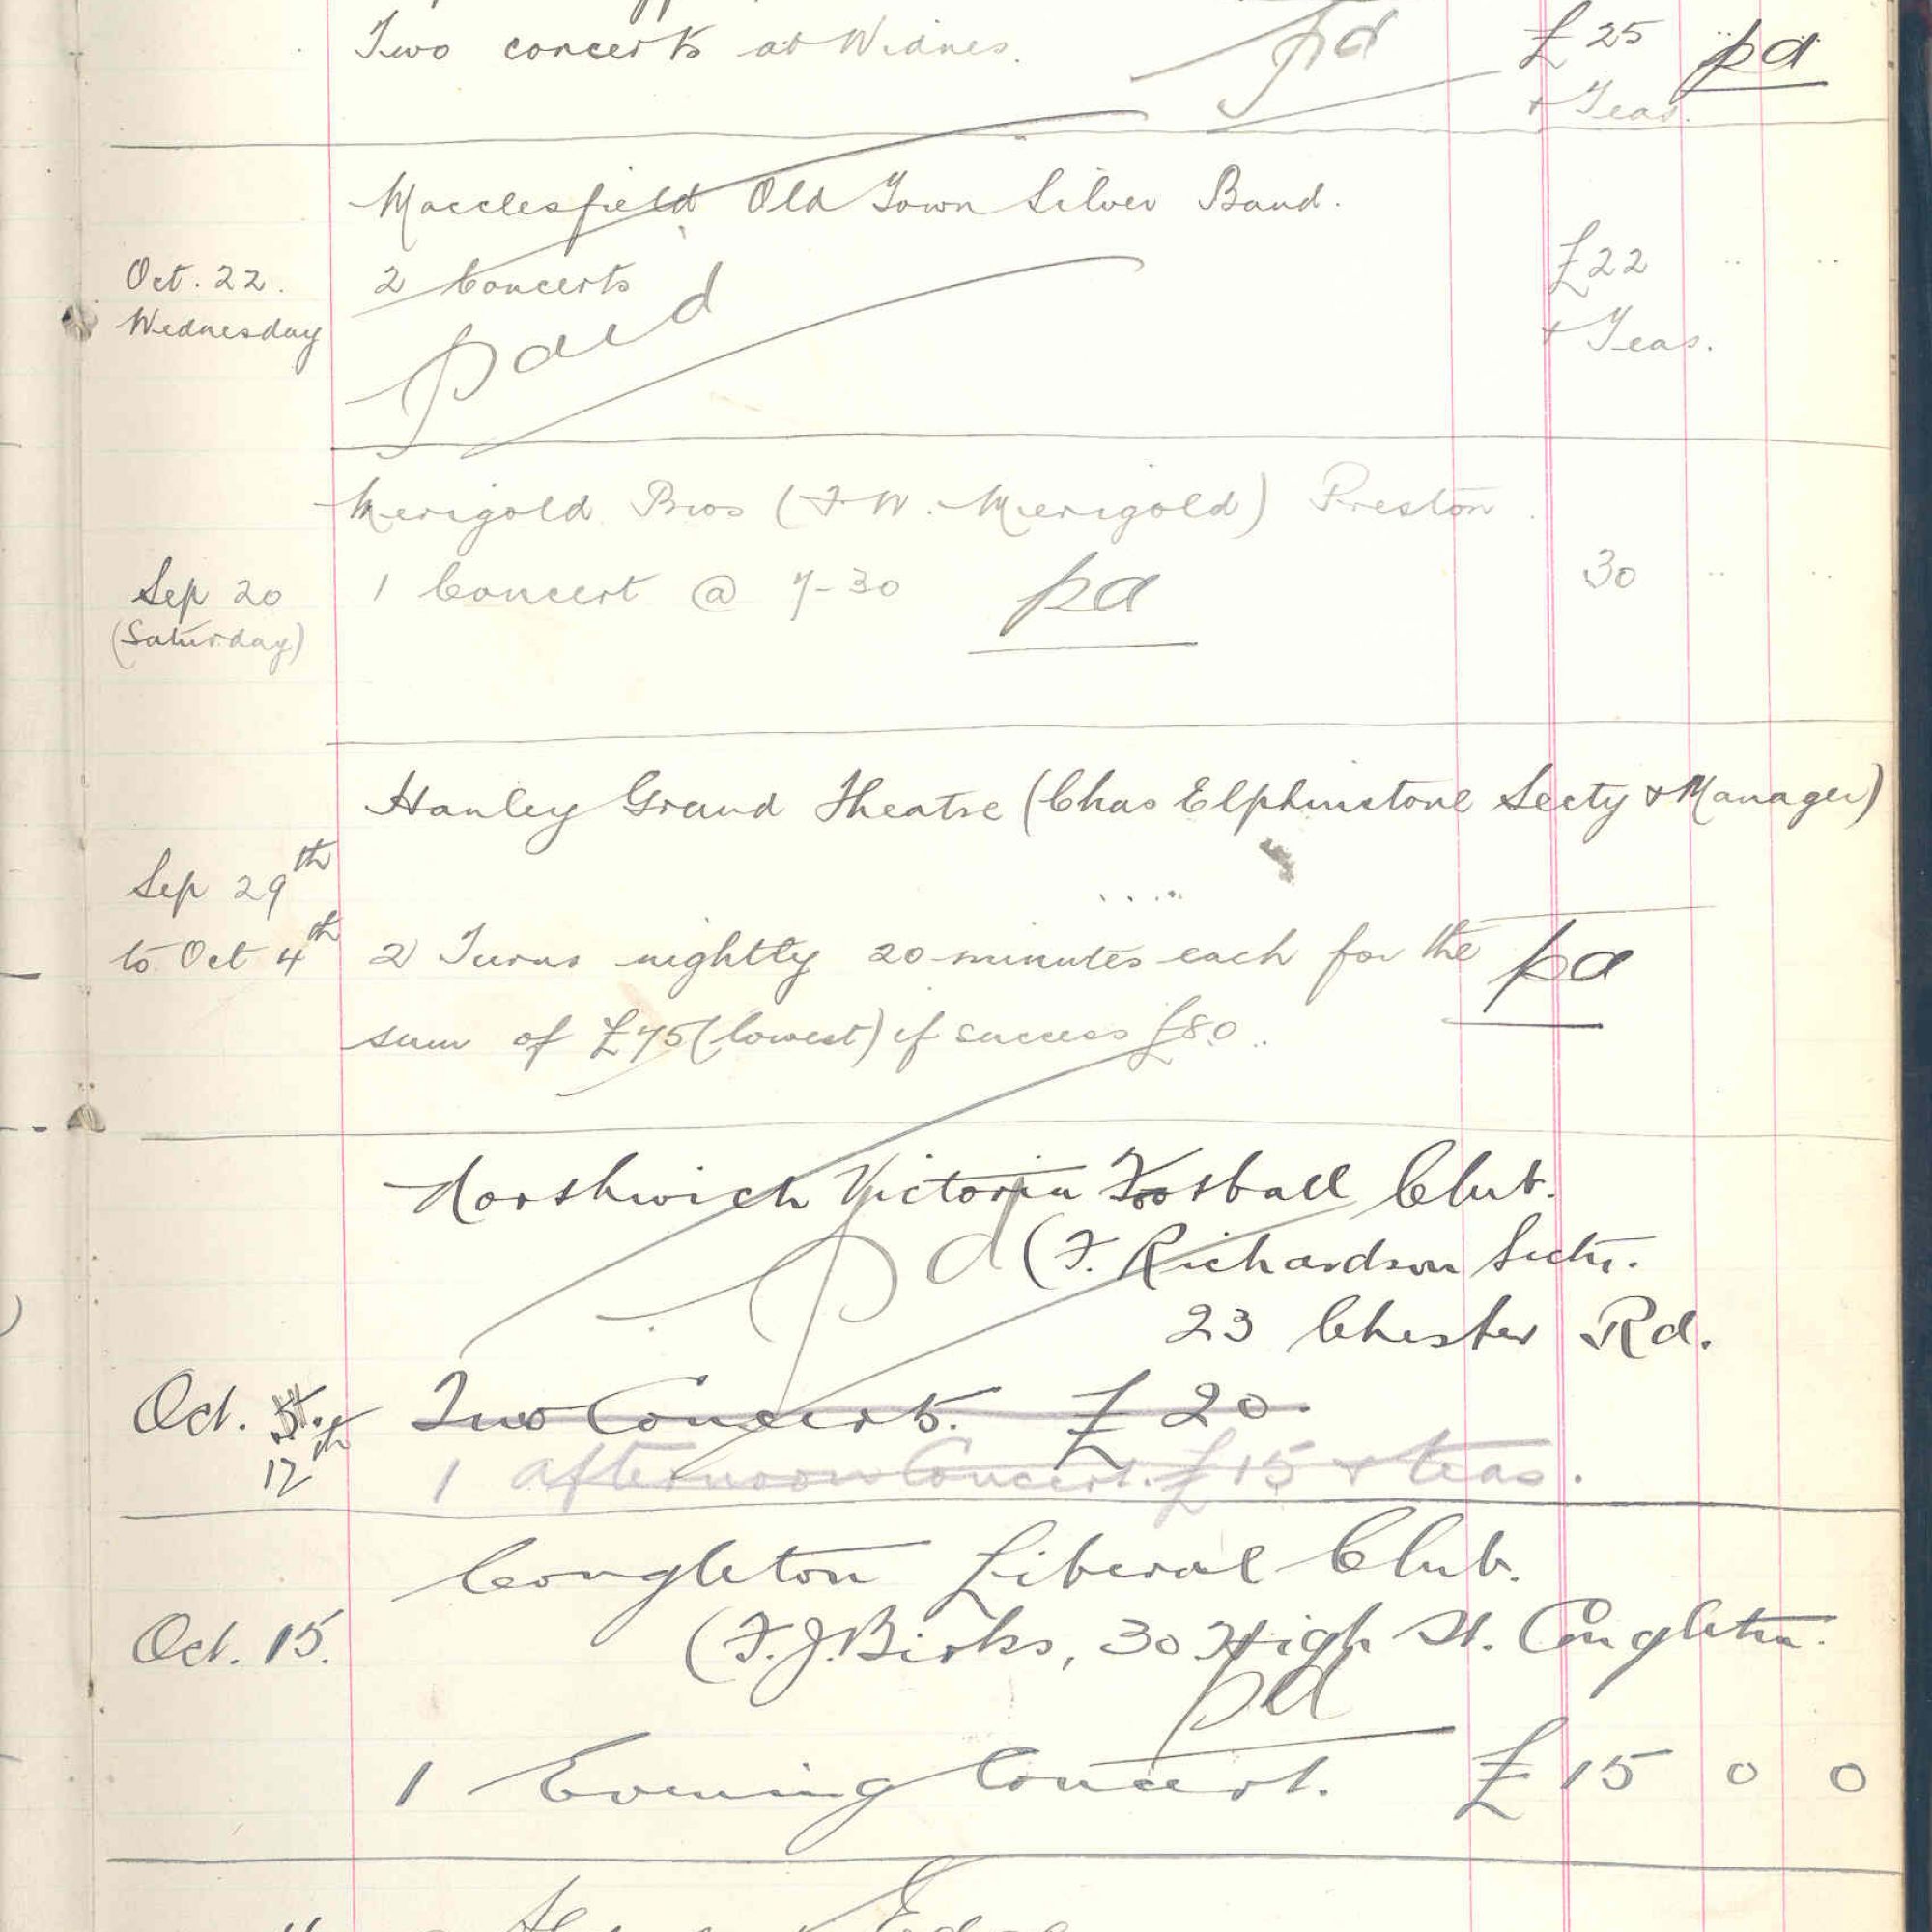 Two concerts at Widnes. pd £25 pd
+ Teas.
Macclesfield Old Town Silver Band.
Oct. 22. 2 Concerts £22 .. ..
Wednesday paid + Teas.
Merigold Bros (F. W. Merigold) Preston.
Sep 20 1 Concert @ 7-30 pd 30 .. ..
(Saturday)
Hanley Grand Theatre (Chas Elphinstone Secty & Manager)
Sep 29th
to Oct 4th 2 Turns nightly 20 minutes each for the pd
sum of £75 (lowest) if success £80..
Northwich Victoria Football Club.
pd (F. Richardson Secty.
23 Chester Rd.
Oct. 5th Two Concerts. £20.
12th 1 afternoon Concert. £15 & teas.
Congleton Liberal Club.
Oct. 15. (F. J. Birks, 30 High St. Congleton.
pd
1 Evening Concert. £ 15 0 0